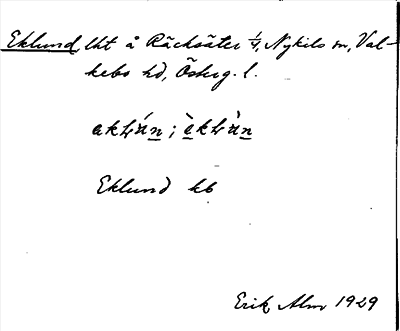 Eklund, lht å Räcksäter 1/4, Nykils sn, Val-
kebo hd, Österg. l.
Eklund kb
Erik Alm 1929